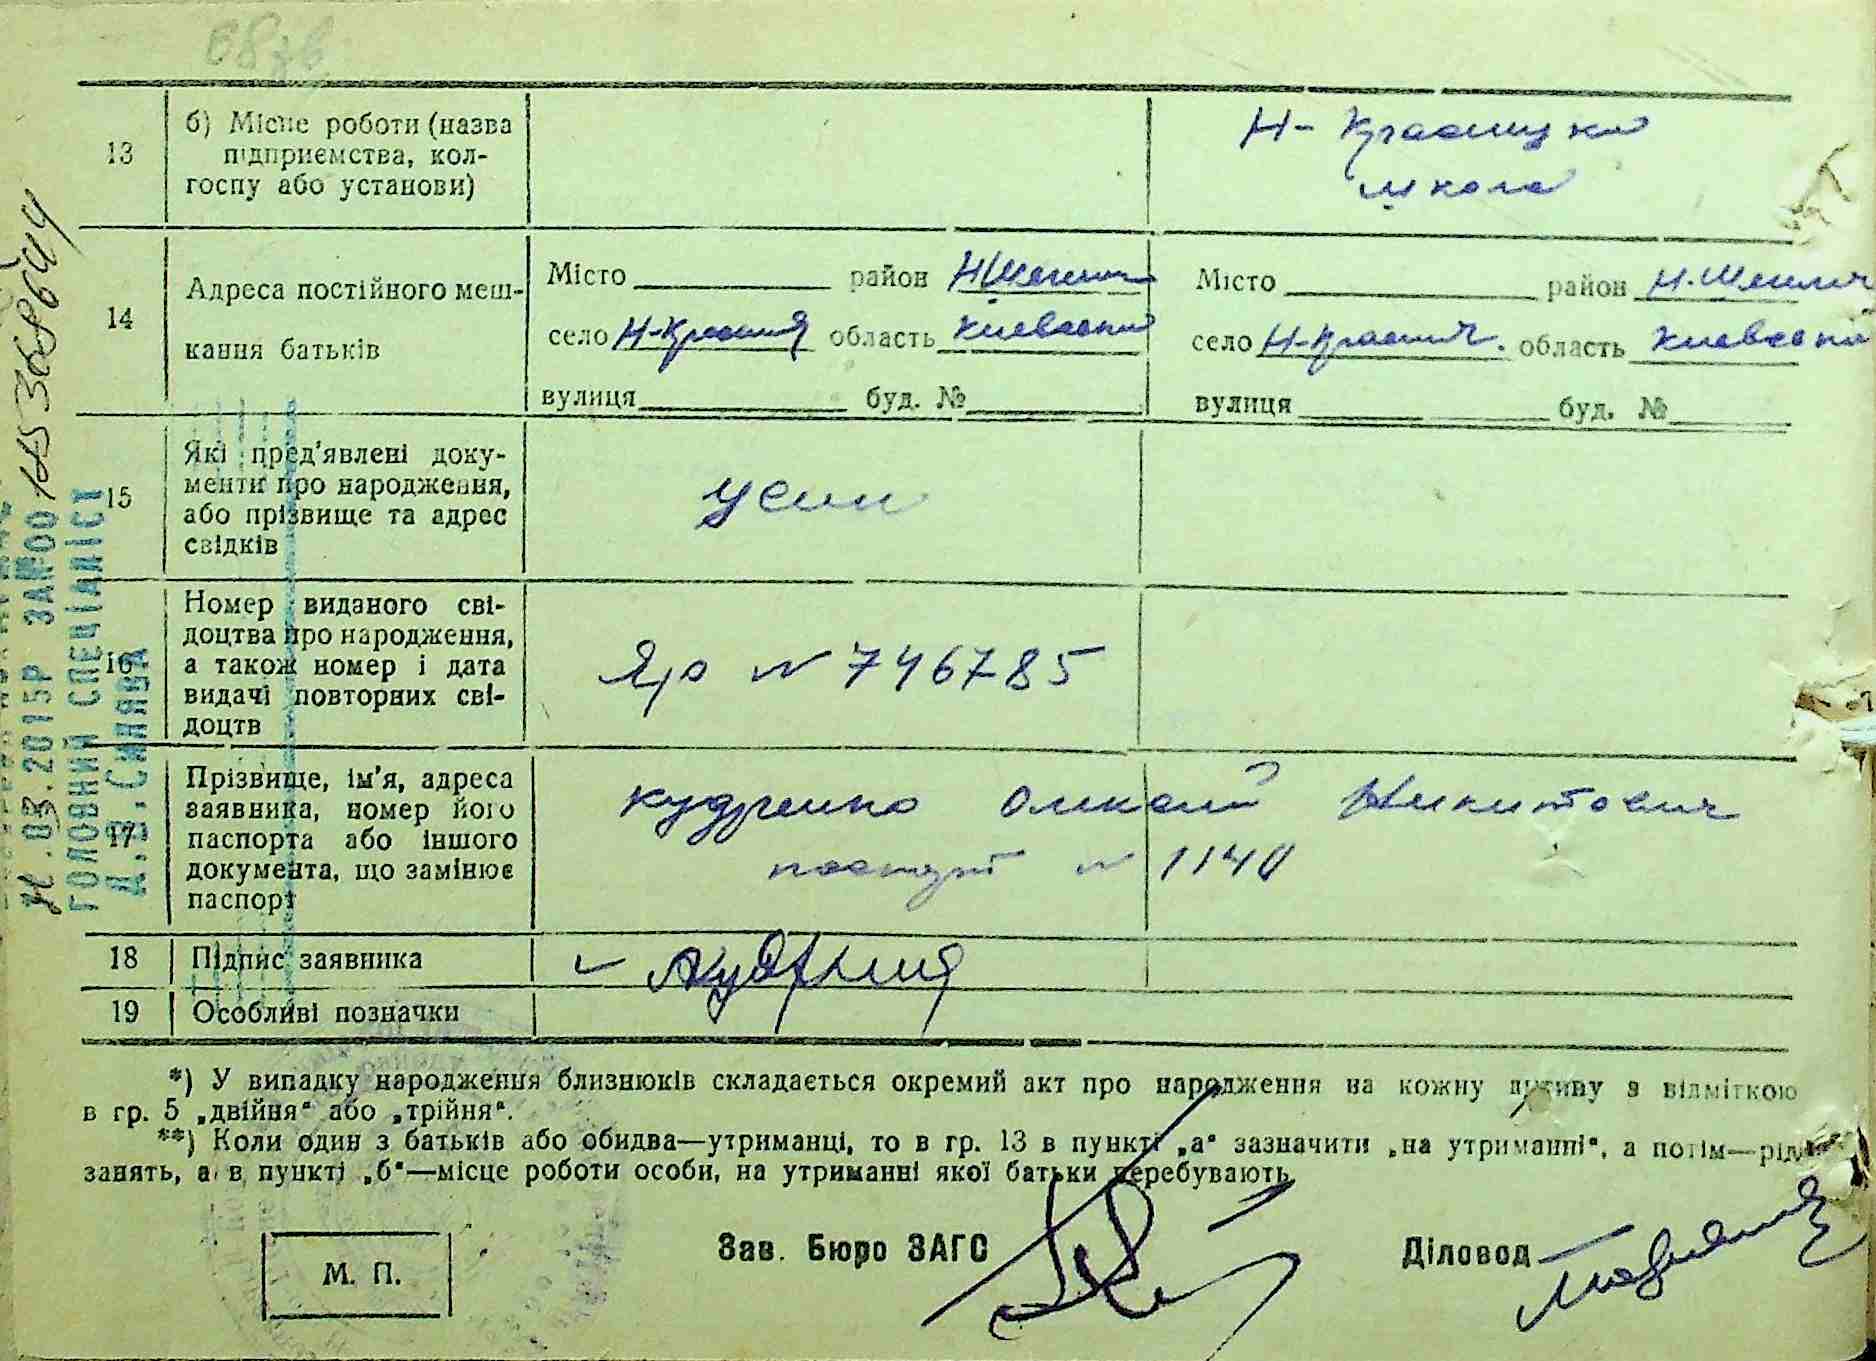 13
б) Місце роботи (назва
підприємства, кол-
госпу або установи)
Н-
школа
14
Адреса постійного меш-
кання батьків
Місто район
село область Киевская
вулиця буд. №
Місто район
село область Киевская
вулиця буд. №
15
Які пред'явлені доку-
менти про народження,
або прізвище та адрес
свідків
16
Номер виданого сві-
доцтва про народження,
а також номер і дата
видачі повторних сві-
доцтв
№ 746785
17
Прізвище, ім'я, адреса
заявника, номер його
паспорта або іншого
документа, що замінює
паспорт
Никитович
паспорт № 1140
18
Підпис заявника
19
Особливі позначки
*) У випадку народження близнюків складається окремий акт про народження на кожну дитину з відміткою
в гр. 5 „двійня“ або „трійня“.
**) Коли один з батьків або обидва—утриманці, то в гр. 13 в пункті „а“ зазначити „на утриманні“, а потім—рід
занять, а в пункті „б“—місце роботи особи, на утриманні якої батьки перебувають.
М. П.
Зав. Бюро ЗАГС
Діловод
.03.2015Р ЗА№00
ГОЛОВНИЙ СПЕЦІАЛІСТ
Д.В.СИНЯВА